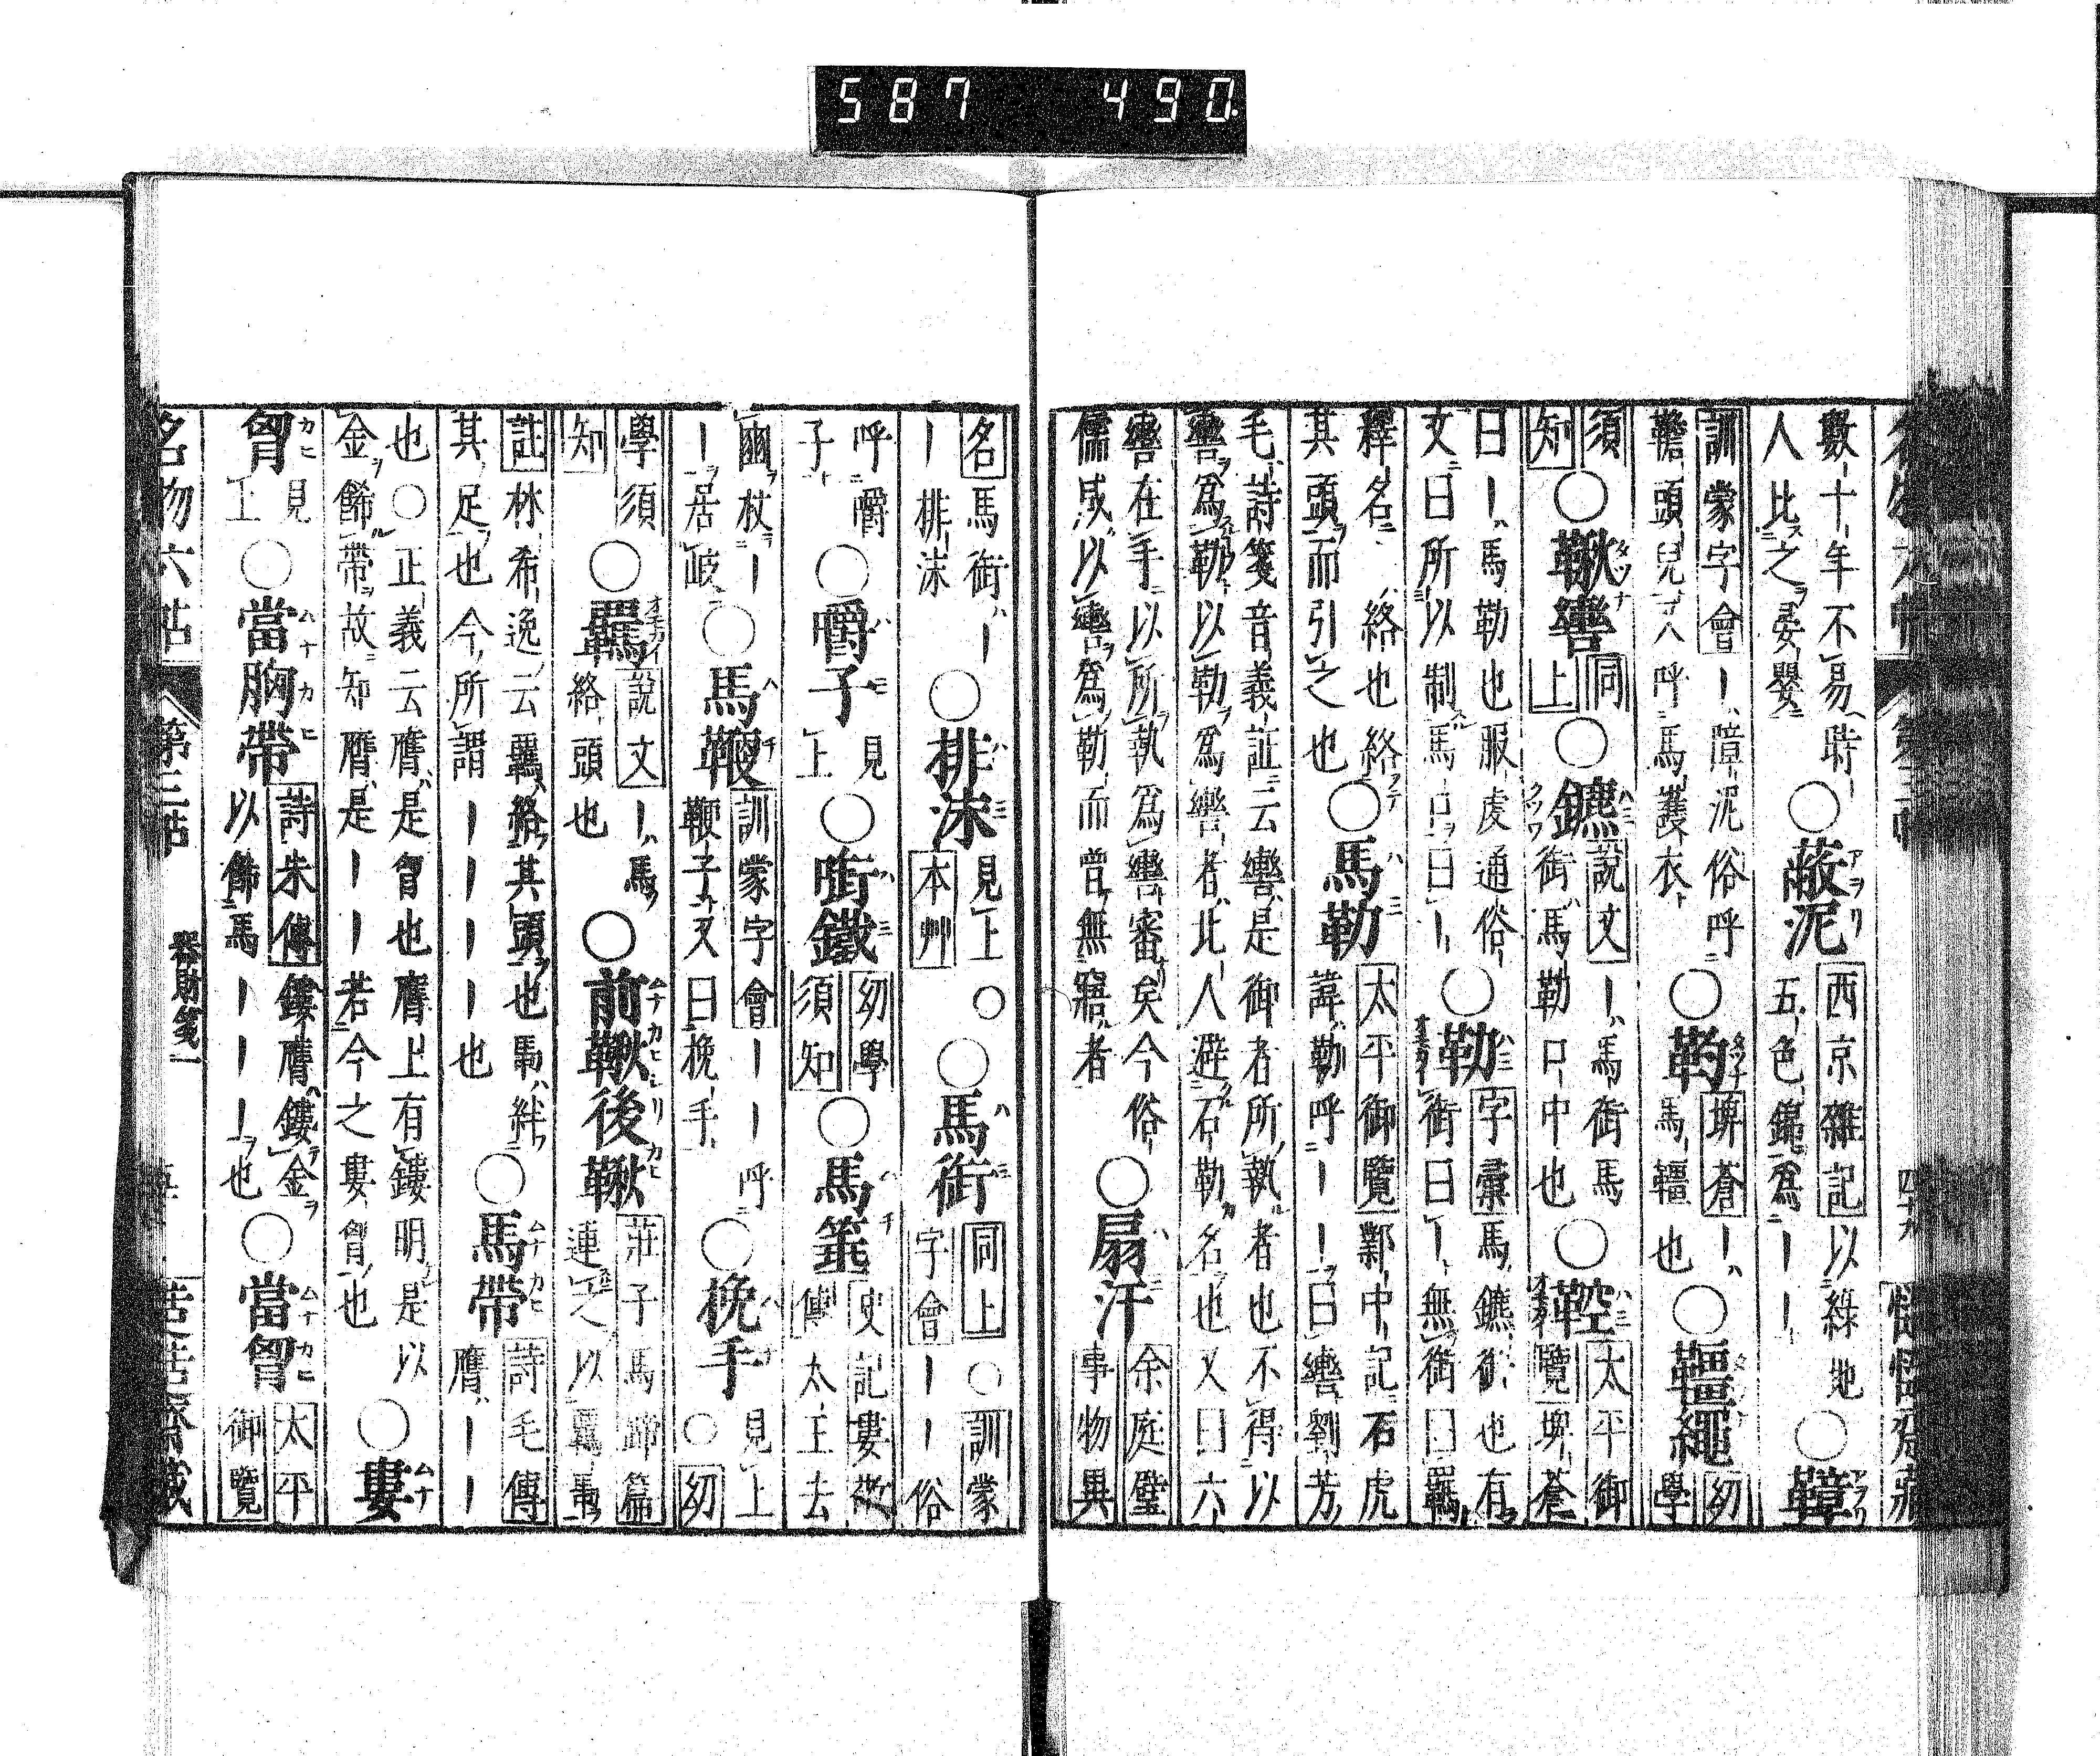 587 490.
數十年不易時〇蔽泥西京雜記以綠地
人比之晏嬰五色錦爲｜｜〇鞾
訓蒙字會｜障泥俗呼〇靮埤蒼｜馬韁也〇韁繩幼學
韂頭兒又呼馬護衣
須知〇鞦轡同上〇鑣說文｜馬銜馬銜馬勒口中也〇鞚太平御覽埤蒼
曰｜馬勒也服虔通俗文曰所以制馬口曰｜〇勒字彙馬鑣銜也有銜曰｜無銜曰羈
釋名絡也絡其頭而引之也〇馬勒太平御覽鄴中記石虎諱勒呼｜｜曰轡劉芳
毛詩箋音義証云轡是御者所執者也不得以
轡爲勒以勒爲轡者北人避石勒名也又曰六
轡在手以所執爲轡審矣今俗〇扇汗余庭璧事物異
儒咸以轡爲勒而曾無寤者
名馬銜｜排沫〇排沫見上本艸〇〇馬銜同上〇訓蒙字會｜｜俗
呼嚼子〇嚼子見上〇銜鐵幼學須知〇馬箠史記婁敬傳太王去
豳杖｜居岐〇馬鞭訓蒙字會｜｜呼鞭子又曰挽手〇挽手見上〇幼
學須知〇羈說文｜馬絡頭也〇前鞦後鞦莊子馬蹄篇連之以羈馬
註林希逸云羈絡其頭也馬絆其足也今所謂｜｜｜｜也〇馬帶詩毛傳膺｜｜
也〇正義云膺是胷也膺上有鏤明是以金飾帶故知膺是｜｜若今之婁胷也〇婁
胷見上〇當胸帶詩朱傳鏤膺鏤金以飾馬｜｜｜也〇當胷太平御覽
名物六帖 第三帖 器財箋一